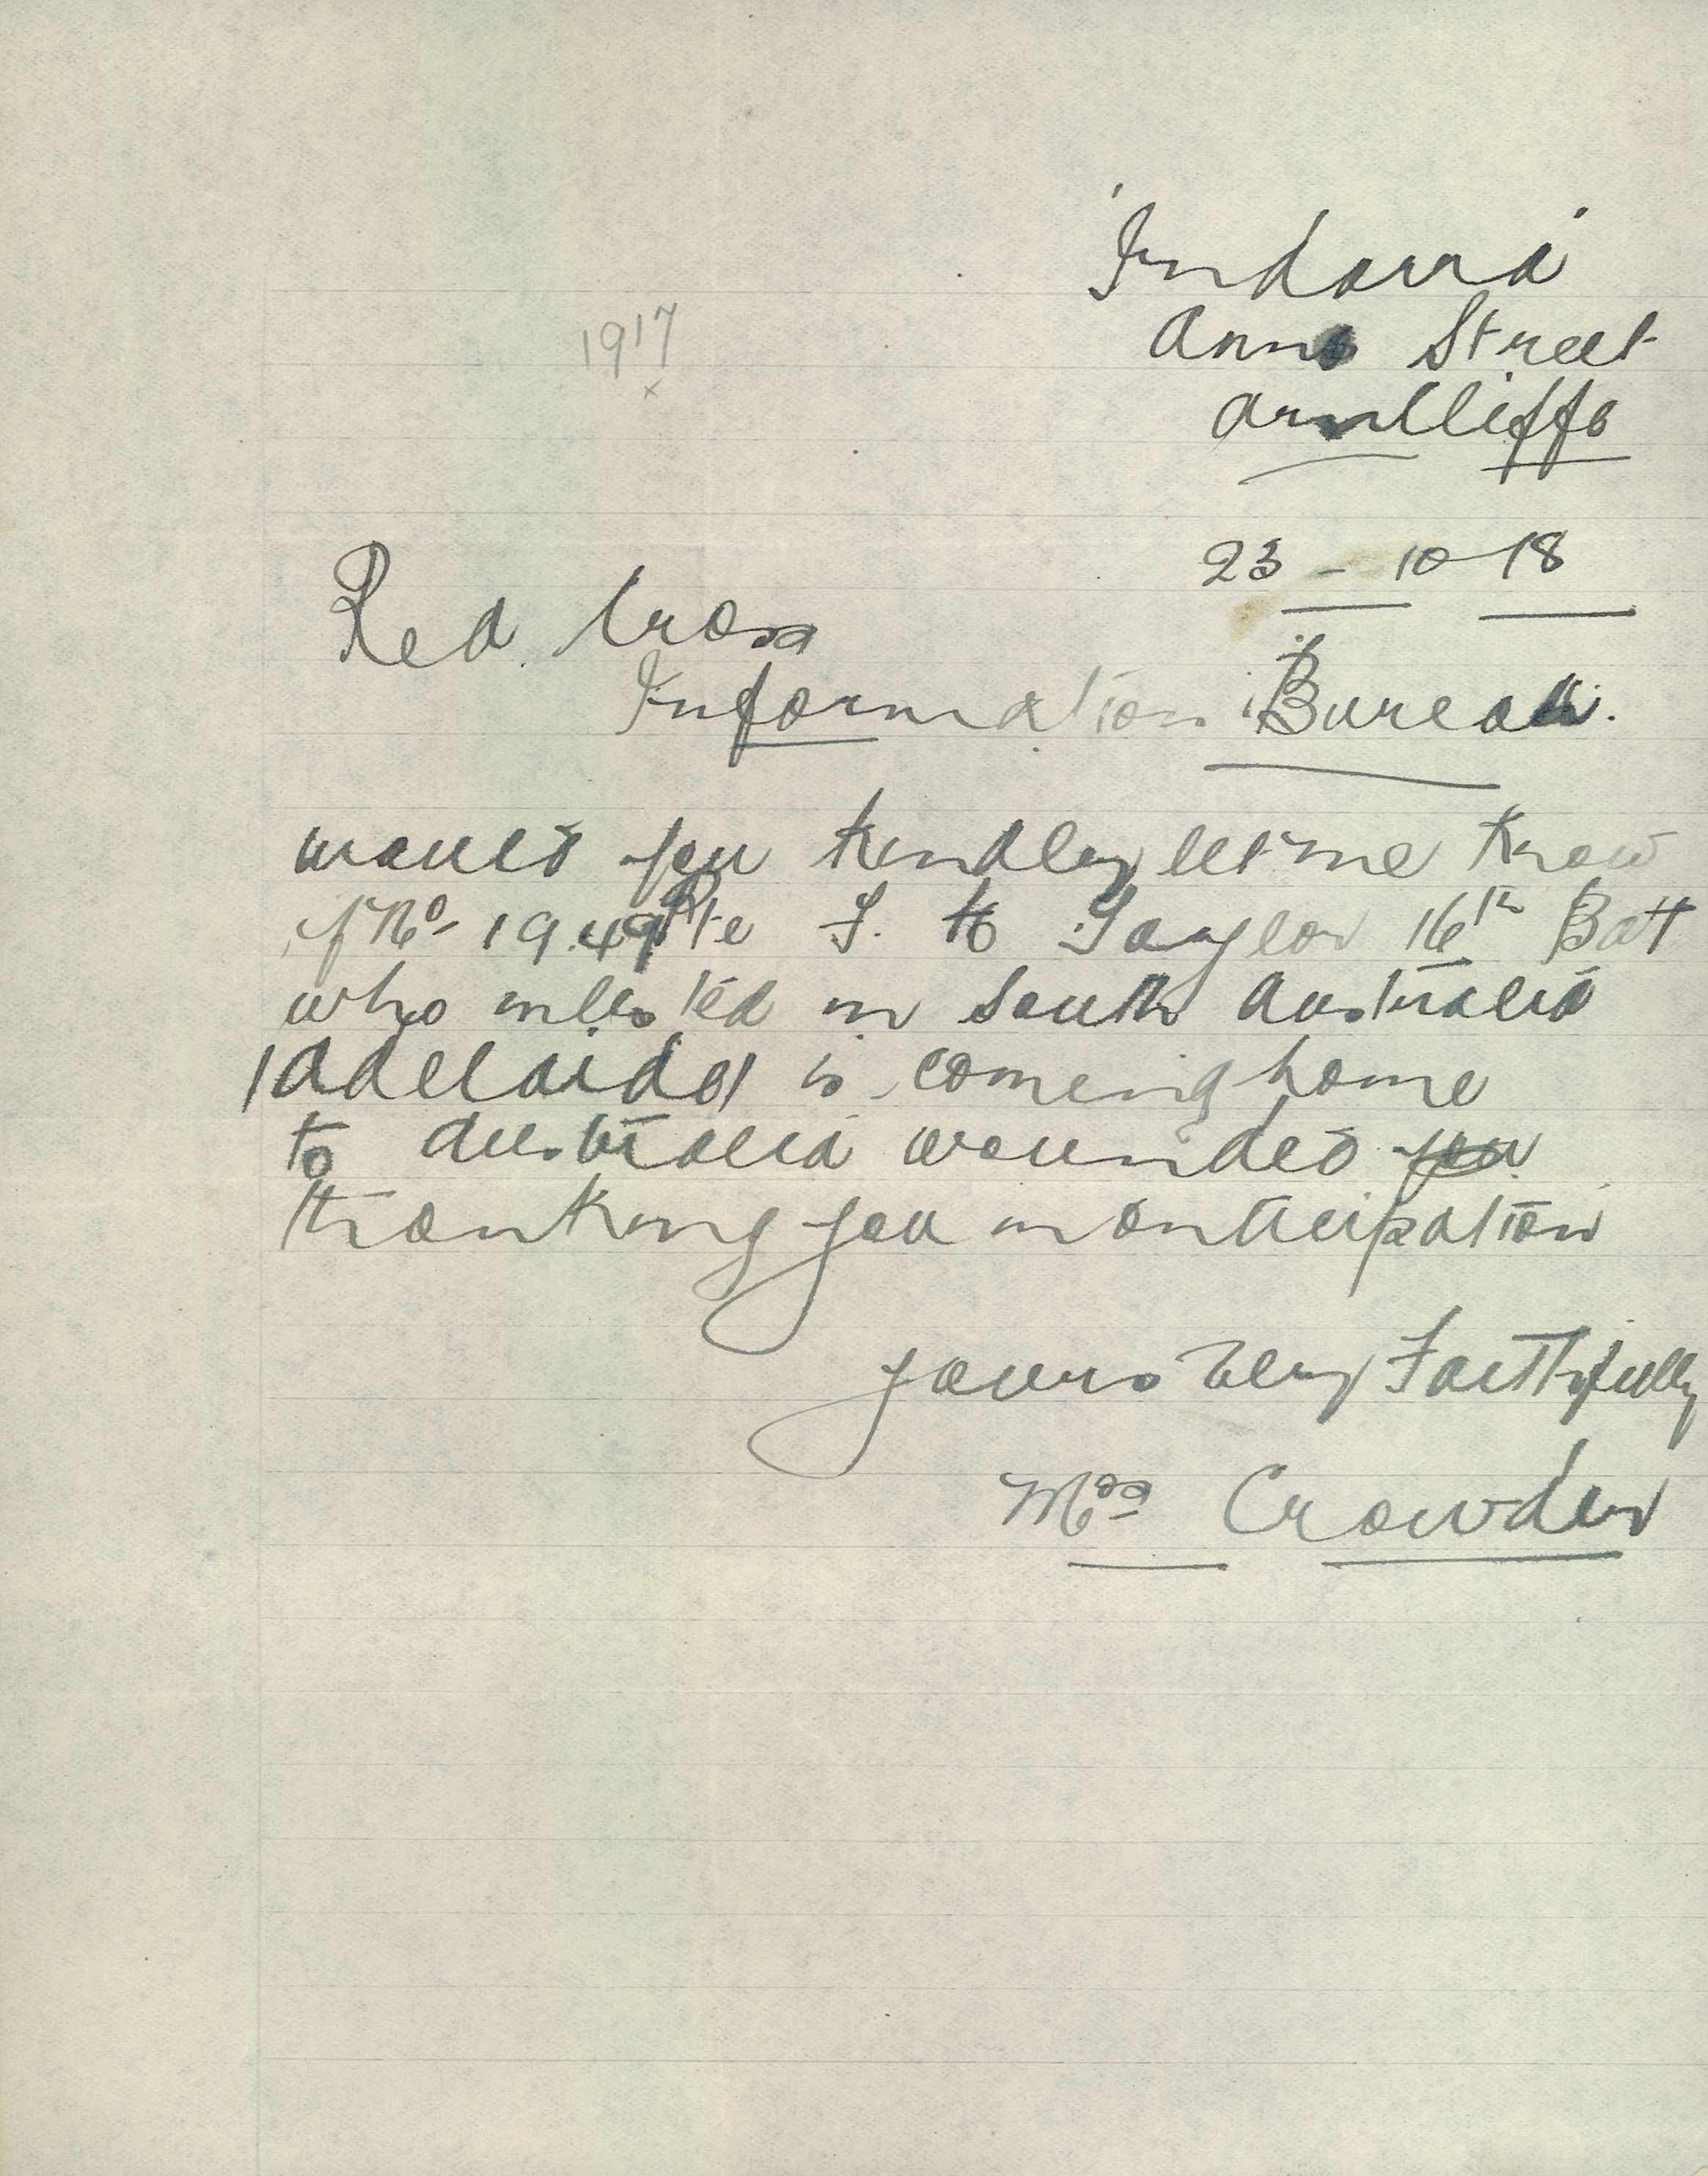 'Indarra'
Anne Street
Arncliffe
1917
x
23 - 10 - 18
Red Cross
Information Bureau.
would you kindly let me know
if No- 1949 Pte F. H Taylor 16th Batt
who inlested in South Australia
(Adelaide) is comeing home
to Australia wounded you
thanking you in anticipation
yours Very Faithfully
Mrs Crowder